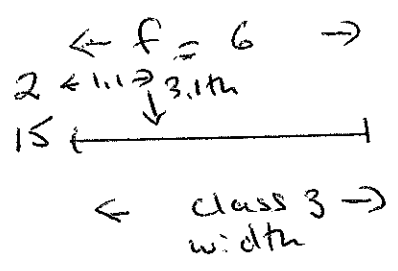 ← f = 6 →
2 ← 1.1 → 3.1th
15
← class 3 →
width